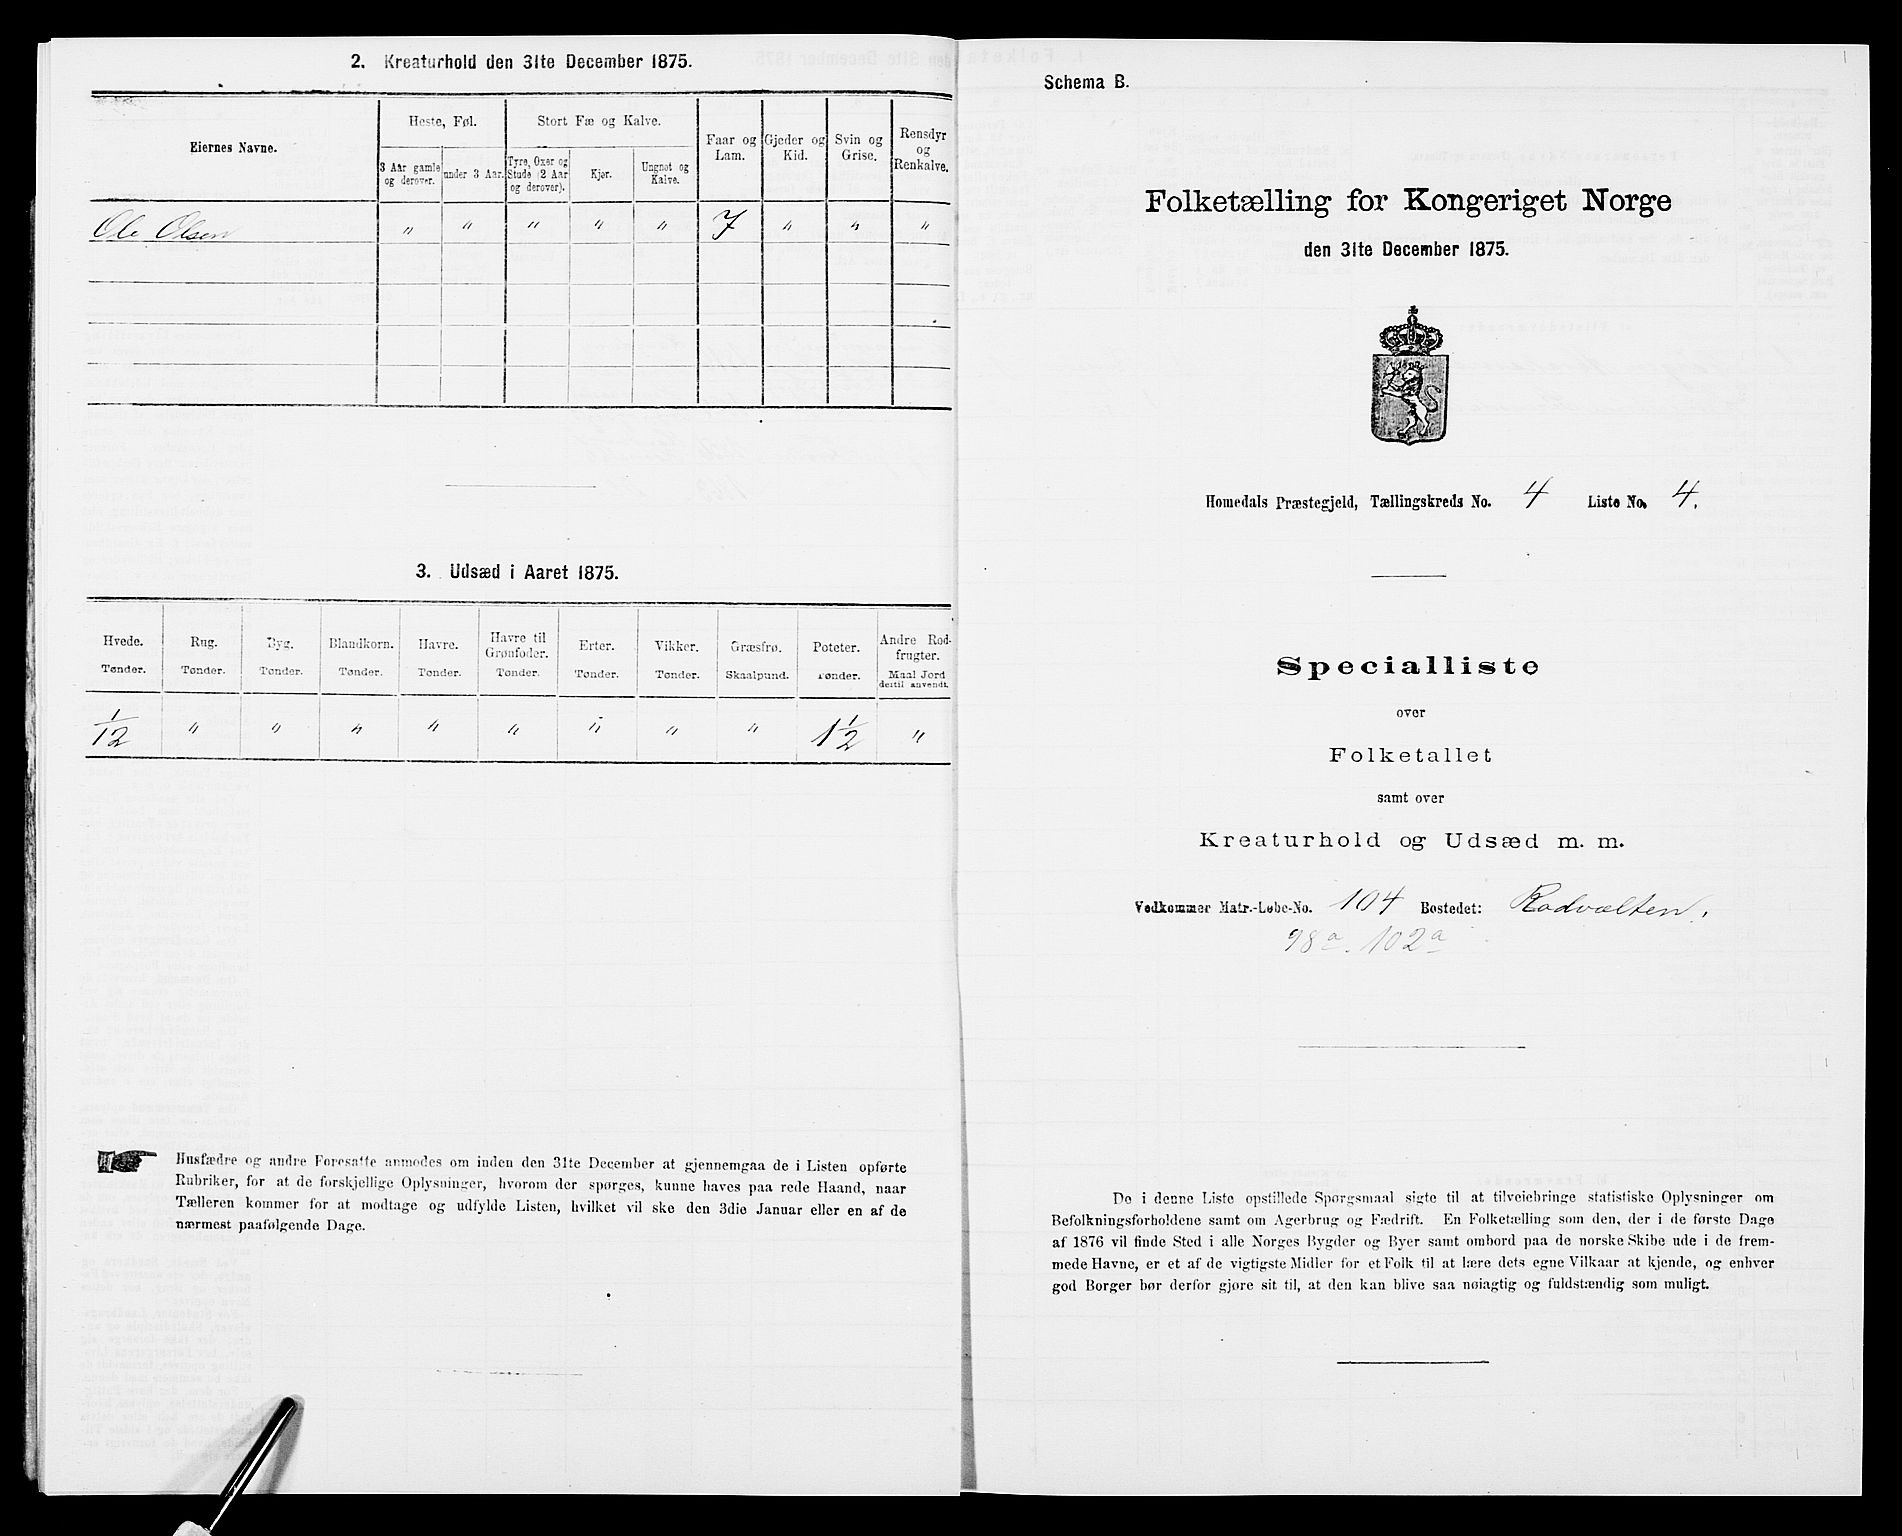 2. Kreaturhold den 31te December 1875.
Eiernes Navne.
Heste, Føl.
Stort Fæ og Kalve.
Faar og Lam.
Gjeder og Kid.
Svin og Grise.
Rensdyr og Renkalve.
3 Aar gamle og derover.
under 3 Aar.
Tyre, Oxer og Stude (2 Aar og derover).
Kjør.
Ungnøt og Kalve.
Ole Olsen " " " " " 7 " " "
3. Udsæd i Aaret 1875.
Hvede. Rug. Byg. Blandkorn. Havre. Havre til Grønfoder. Erter. Vikker. Græsfrø. Poteter. Andre Rodfrugter.
Tønder. Tønder. Tønder. Tønder. Tønder. Tønder. Tønder. Tønder. Skaalpund. Tønder. Maal Jord dertil anvendt.
1/12 " " " " " " " " 1 1/2 "
Husfædre og andre Foresatte anmodes om inden den 31te December at gjennemgaa de i Listen opførte
Rubriker, for at de forskjellige Oplysninger, hvorom der spørges, kunne haves paa rede Haand, naar
Tælleren kommer for at modtage og udfylde Listen, hvilket vil ske den 3die Januar eller en af de
nærmest paafølgende Dage.
Schema B.
Folketælling for Kongeriget Norge
den 31te December 1875.
Homedals Præstegjeld, Tællingskreds No. 4 Liste No. 4.
Specialliste
over
Folketallet
samt over
Kreaturhold og Udsæd m. m.
Vedkommer Matr.-Løbe-No. 104 Bostedet: Rodvalten.
98a. 102a
De i denne Liste opstillede Spørgsmaal sigte til at tilveiebringe statistiske Oplysninger om
Befolkningsforholdene samt om Agerbrug og Fædrift. En Folketælling som den, der i de første Dage
af 1876 vil finde Sted i alle Norges Bygder og Byer samt ombord paa de norske Skibe ude i de frem-
mede Havne, er et af de vigtigste Midler for et Folk til at lære dets egne Vilkaar at kjende, og enhver
god Borger bør derfor gjøre sit til, at den kan blive saa nøiagtig og fuldstændig som muligt.